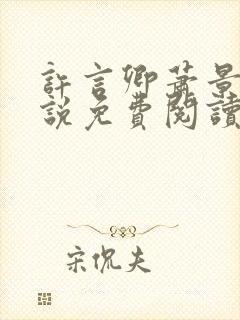 許言卿蕭景
說免費閱讀
宋侃夫